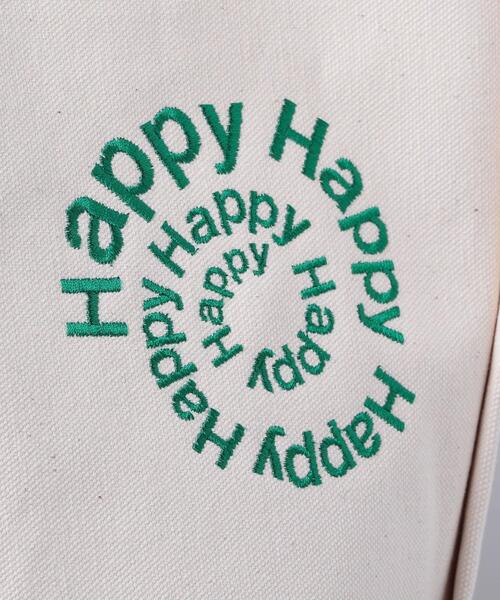 Happy Happy Happy Happy Happy Happy Happy